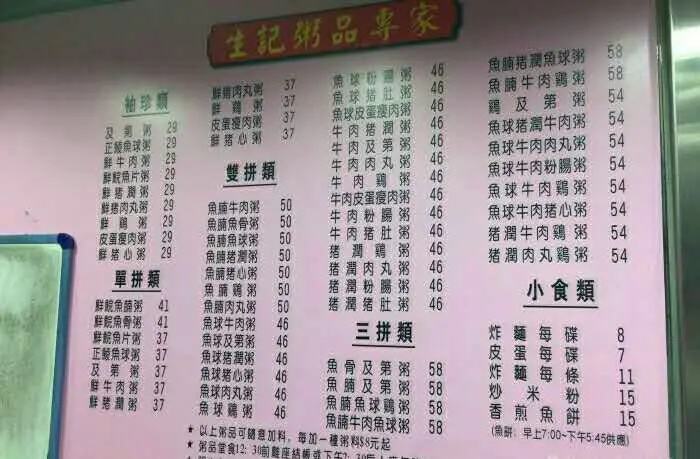 生記粥品專家
袖珍類
及第粥 29
正鯪魚球粥 29
鮮牛肉粥 29
鮮鯇魚片粥 29
鮮豬潤粥 29
鮮豬肉丸粥 29
鮮鷄粥 29
皮蛋瘦肉粥 29
鮮豬心粥 29
單拼類
鮮鯇魚腩粥 41
鮮鯇魚骨粥 41
鮮鯇魚片粥 37
正鯪魚球粥 37
及第粥 37
鮮牛肉粥 37
鮮豬潤粥 37
鮮豬肉丸粥 37
鮮鷄粥 37
皮蛋瘦肉粥 37
鮮豬心粥 37
雙拼類
魚腩牛肉粥 50
魚腩魚骨粥 50
魚腩魚球粥 50
魚腩豬潤粥 50
魚腩豬心粥 50
魚腩鷄粥 50
魚腩肉丸粥 50
魚球牛肉粥 46
魚球及第粥 46
魚球豬潤粥 46
魚球豬心粥 46
魚球肉丸粥 46
魚球鷄粥 46
魚球粉腸粥 46
魚球豬肚粥 46
魚球皮蛋瘦肉粥 46
牛肉豬潤粥 46
牛肉及第粥 46
牛肉肉丸粥 46
牛肉鷄粥 46
牛肉皮蛋瘦肉粥 46
牛肉粉腸粥 46
牛肉豬肚粥 46
豬潤鷄粥 46
豬潤肉丸粥 46
豬潤粉腸粥 46
豬潤豬肚粥 46
三拼類
魚骨及第粥 58
魚腩及第粥 58
魚腩魚球鷄粥 58
魚腩牛肉魚球粥 58
魚腩豬潤魚球粥 58
魚腩牛肉鷄粥 58
鷄及第粥 54
魚球豬潤牛肉粥 54
魚球牛肉肉丸粥 54
魚球牛肉粉腸粥 54
魚球牛肉鷄粥 54
魚球牛肉豬心粥 54
豬潤牛肉鷄粥 54
豬潤肉丸鷄粥 54
小食類
炸麵每碟 8
皮蛋每碟 7
炸麵每條 11
炒米粉 15
香煎魚餅 15
(魚餅：早上7:00~下午5:45供應)
★以上粥品可隨意加料，每加一種粥料$8元起
★粥品堂食12:30前離座結帳或下午2:30後